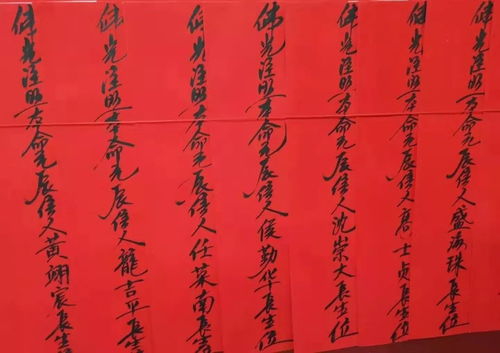 佛光注照本命元辰信人盛海珠長生位
佛光注照本命元辰信人唐士贞長生位
佛光注照本命元辰信人沈崇大長生位
佛光注照本命元辰信人侯勤华長生位
佛光注照本命元辰信人任菜南長生
佛光注照本命元辰信人龍吉平長生
佛光注照本命元辰信人黄翊宸長生